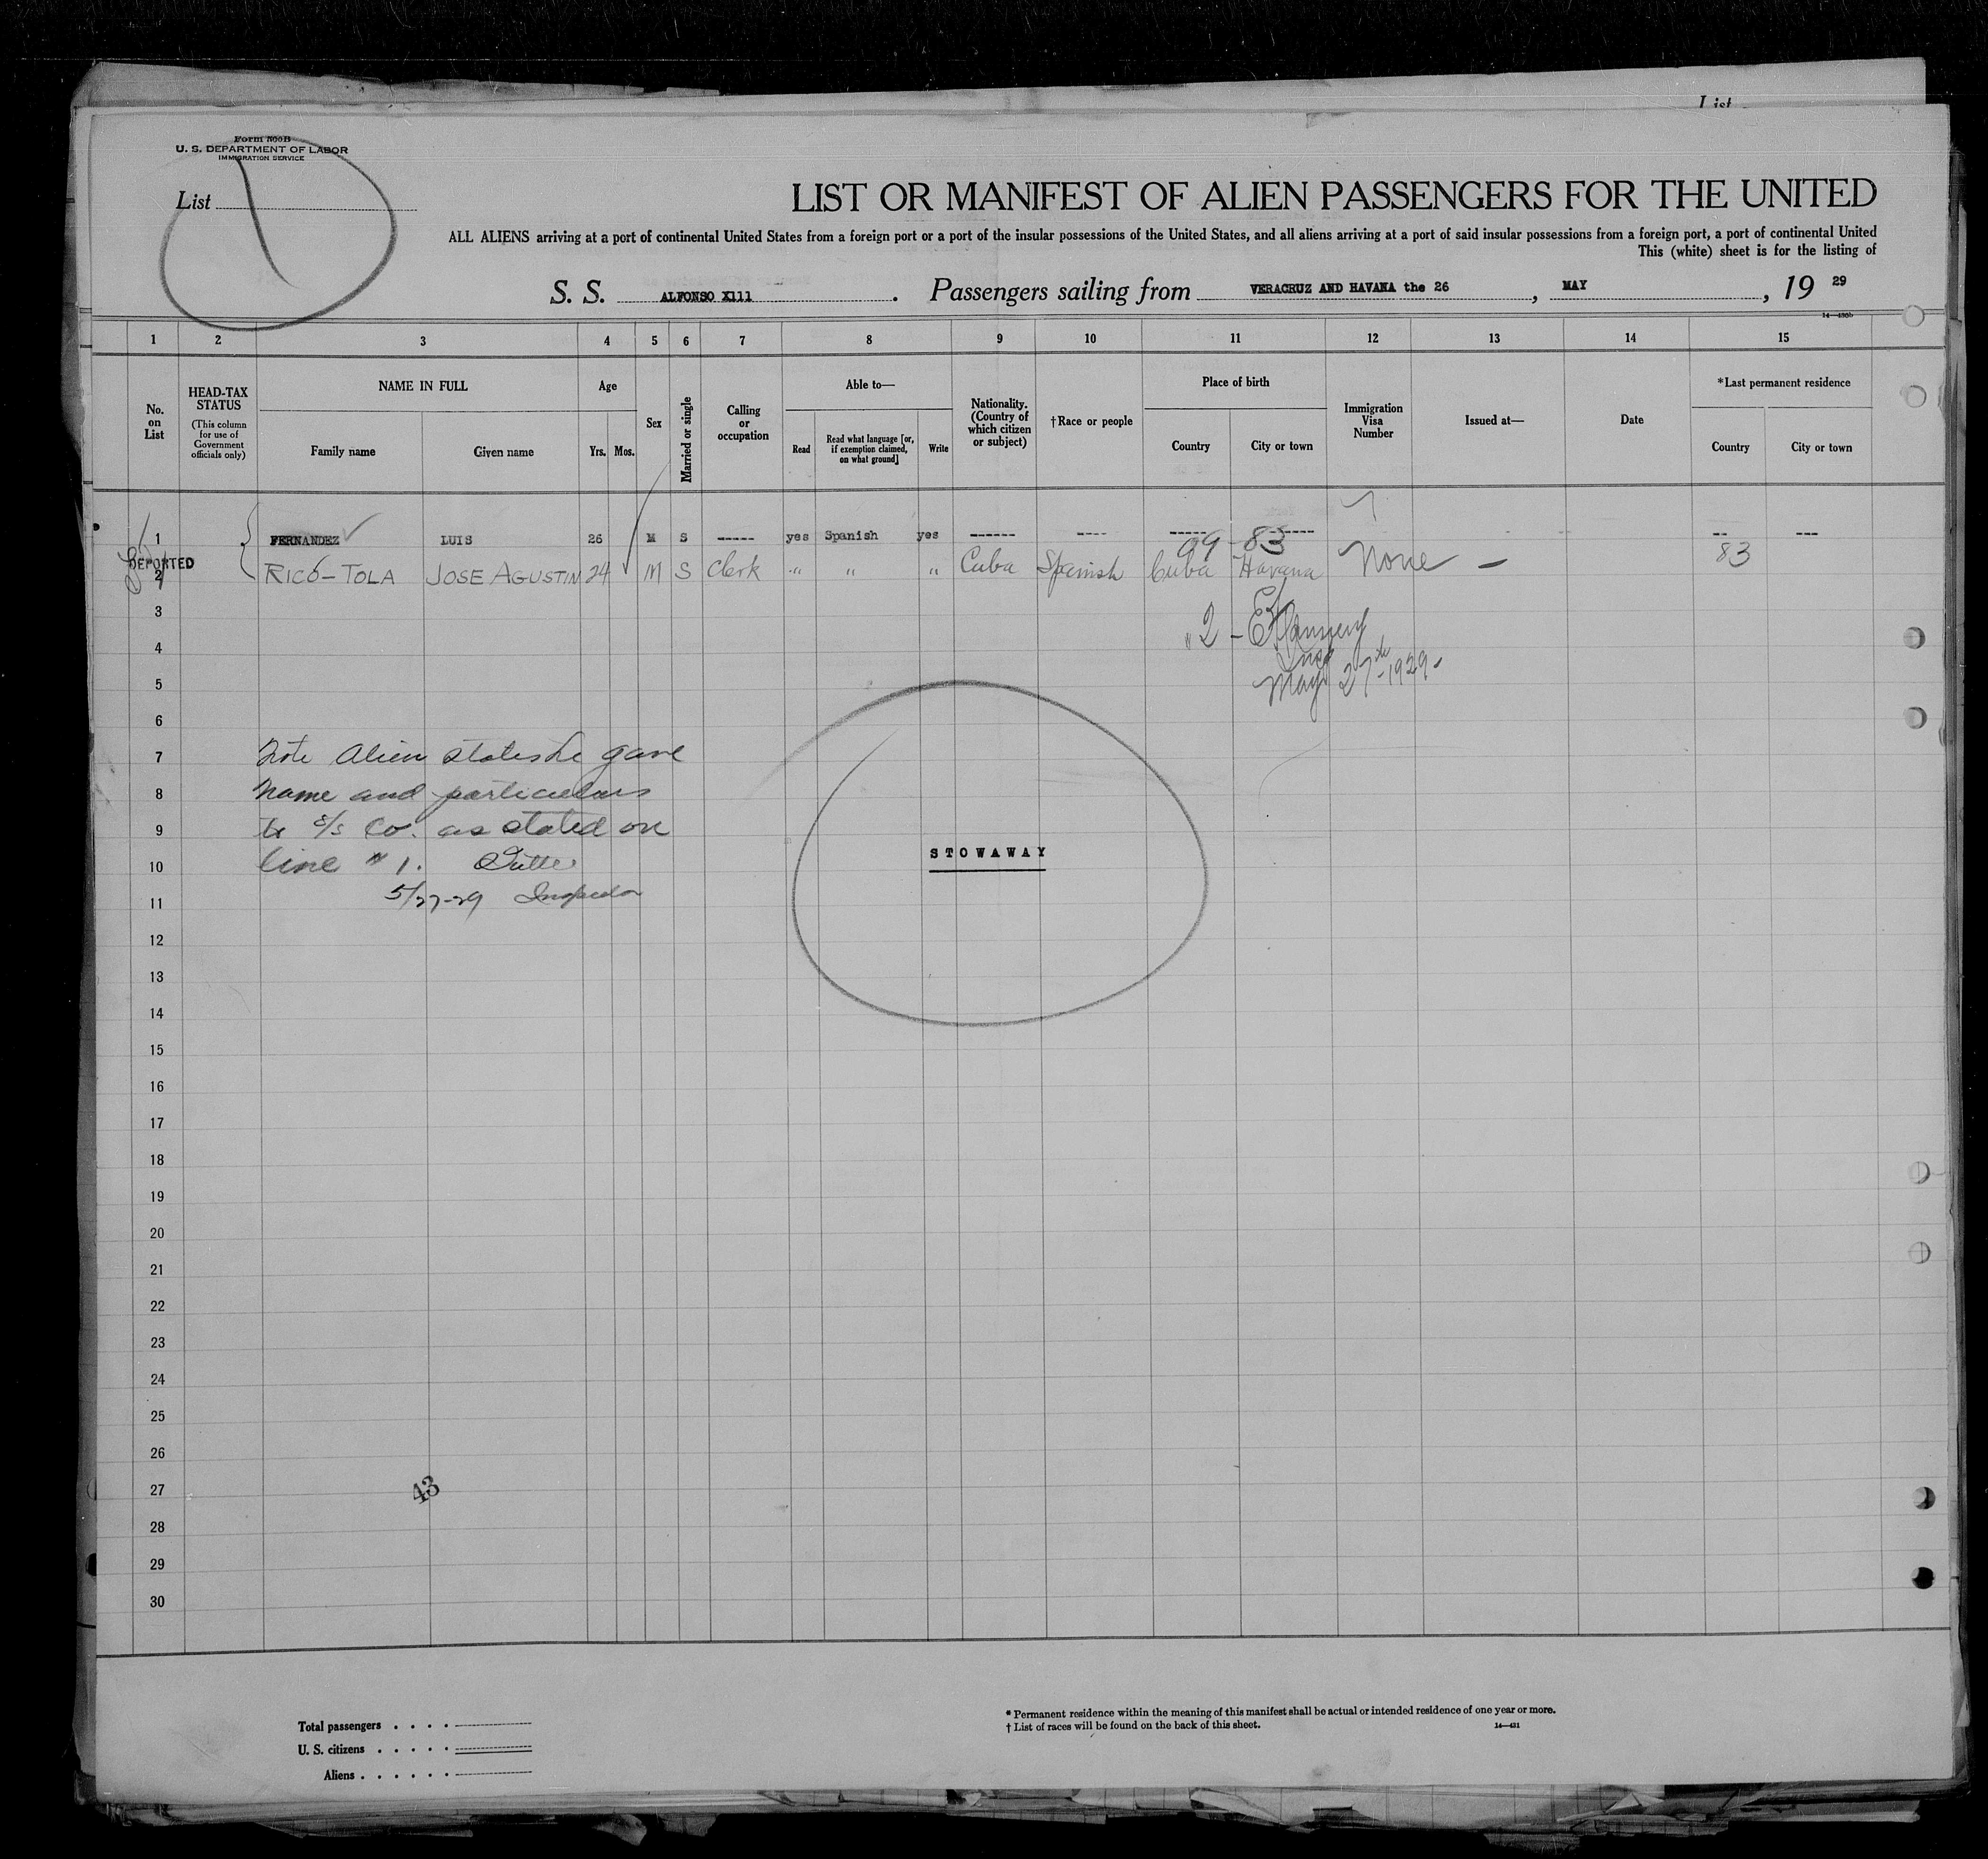 List
Form 500B
U. S. DEPARTMENT OF LABOR
IMMIGRATION SERVICE
List
LIST OR MANIFEST OF ALIEN PASSENGERS FOR THE UNITED
ALL ALIENS arriving at a port of continental United States from a foreign port or a port of the insular possessions of the United States, and all aliens arriving at a port of said insular possessions from a foreign port, a port of continental United
This (white) sheet is for the listing of
S. S. ALFONSO X111. Passengers sailing from VERACRUZ AND HAVANA the 26, MAY, 19 29
14—430b
1 2 3 4 5 6 7 8 9 10 11 12 13 14 15
No. on List
HEAD-TAX STATUS
(This column for use of Government officials only)
NAME IN FULL
Family name Given name
Age
Yrs. Mos.
Sex
Married or single
Calling or occupation
Able to—
Read
Read what language [or, if exemption claimed, on what ground]
Write
Nationality. (Country of which citizen or subject)
†Race or people
Place of birth
Country City or town
Immigration Visa Number
Issued at—
Date
*Last permanent residence
Country City or town
1 FERNANDEZ LUIS 26 M S ----- yes Spanish yes ------ ---- ----- ----- -- ---
09 - 83
DEPORTED
2 RICO-TOLA JOSE AGUSTIN 24 M S Clerk " " " Cuba Spanish Cuba Havana None — 83
3
"2 -
4
May 27th-1929-
5
6
7 Note Alien states he gave
8 name and particulars
9 to S/S Co. as stated on
10 line # 1.
STOWAWAY
11 5/27-29 Inspector
12
13
14
15
16
17
18
19
20
21
22
23
24
25
26
27
43
28
29
30
Total passengers . . . .
U. S. citizens . . . . .
Aliens . . . . . .
* Permanent residence within the meaning of this manifest shall be actual or intended residence of one year or more.
† List of races will be found on the back of this sheet.
14—431